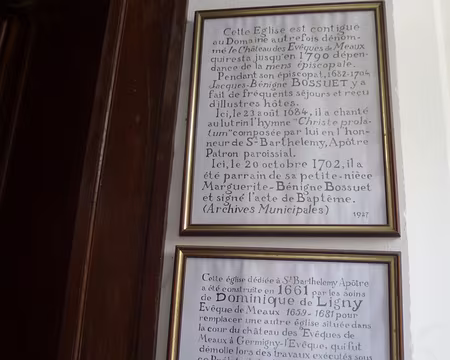 Cette Eglise est contiguë
au Domaine autrefois dénom-
mé le Château des Evêques de Meaux
qui resta jusqu'en 1790 dépen-
dance de la mens épiscopale.
Pendant son épiscopat, 1682-1704,
Jacques-Bénigne BOSSUET y a
fait de fréquents séjours et reçu
d'illustres hôtes.
Ici, le 23 août 1684, il a chanté
au lutrin l'hymne "Christe prola-
tum" composée par lui en l'hon-
neur de St Barthelemy, Apôtre
Patron paroissial.
Ici, le 20 octobre 1702, il a
été parrain de sa petite-nièce
Marguerite-Bénigne Bossuet
et signé l'acte de Baptême.
(Archives Municipales)
1927
Cette église dédiée à St Barthelemy Apôtre
a été construite en 1661 par les soins
de Dominique de Ligny
Evêque de Meaux 1659-1681 pour
remplacer une autre église située dans
la cour du château des Evêques de
Meaux à Germigny-l'Evêque, qui fut
démolie lors des travaux exécutés sous